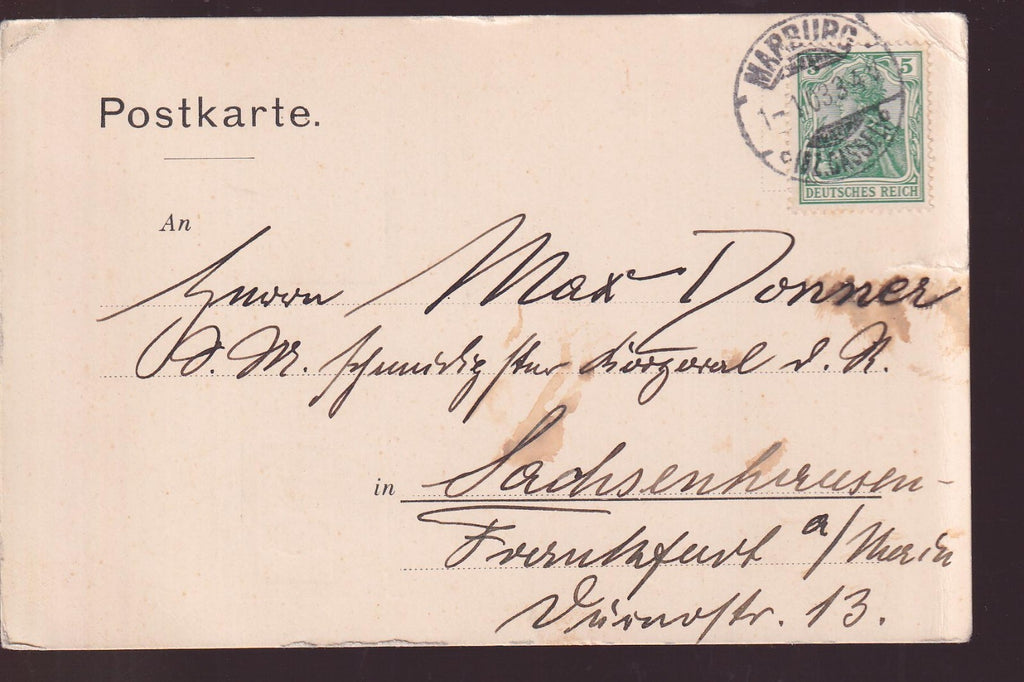 Postkarte.
MARBURG
5 5
1-1.03.3-4N
*(BZ.CASSEL)*
DEUTSCHES REICH
An
Herrn Max Donner
S. M. schneidigster Korporal d. R.
in Sachsenhausen-
Frankfurt a/Main
13.